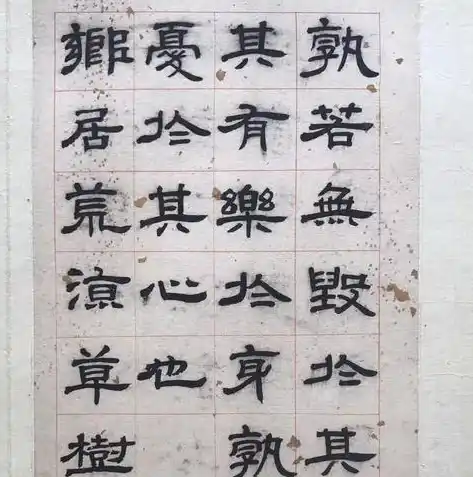 孰若無毀於其
其有樂於身孰
憂於其心也
鄉居荒涼草樹